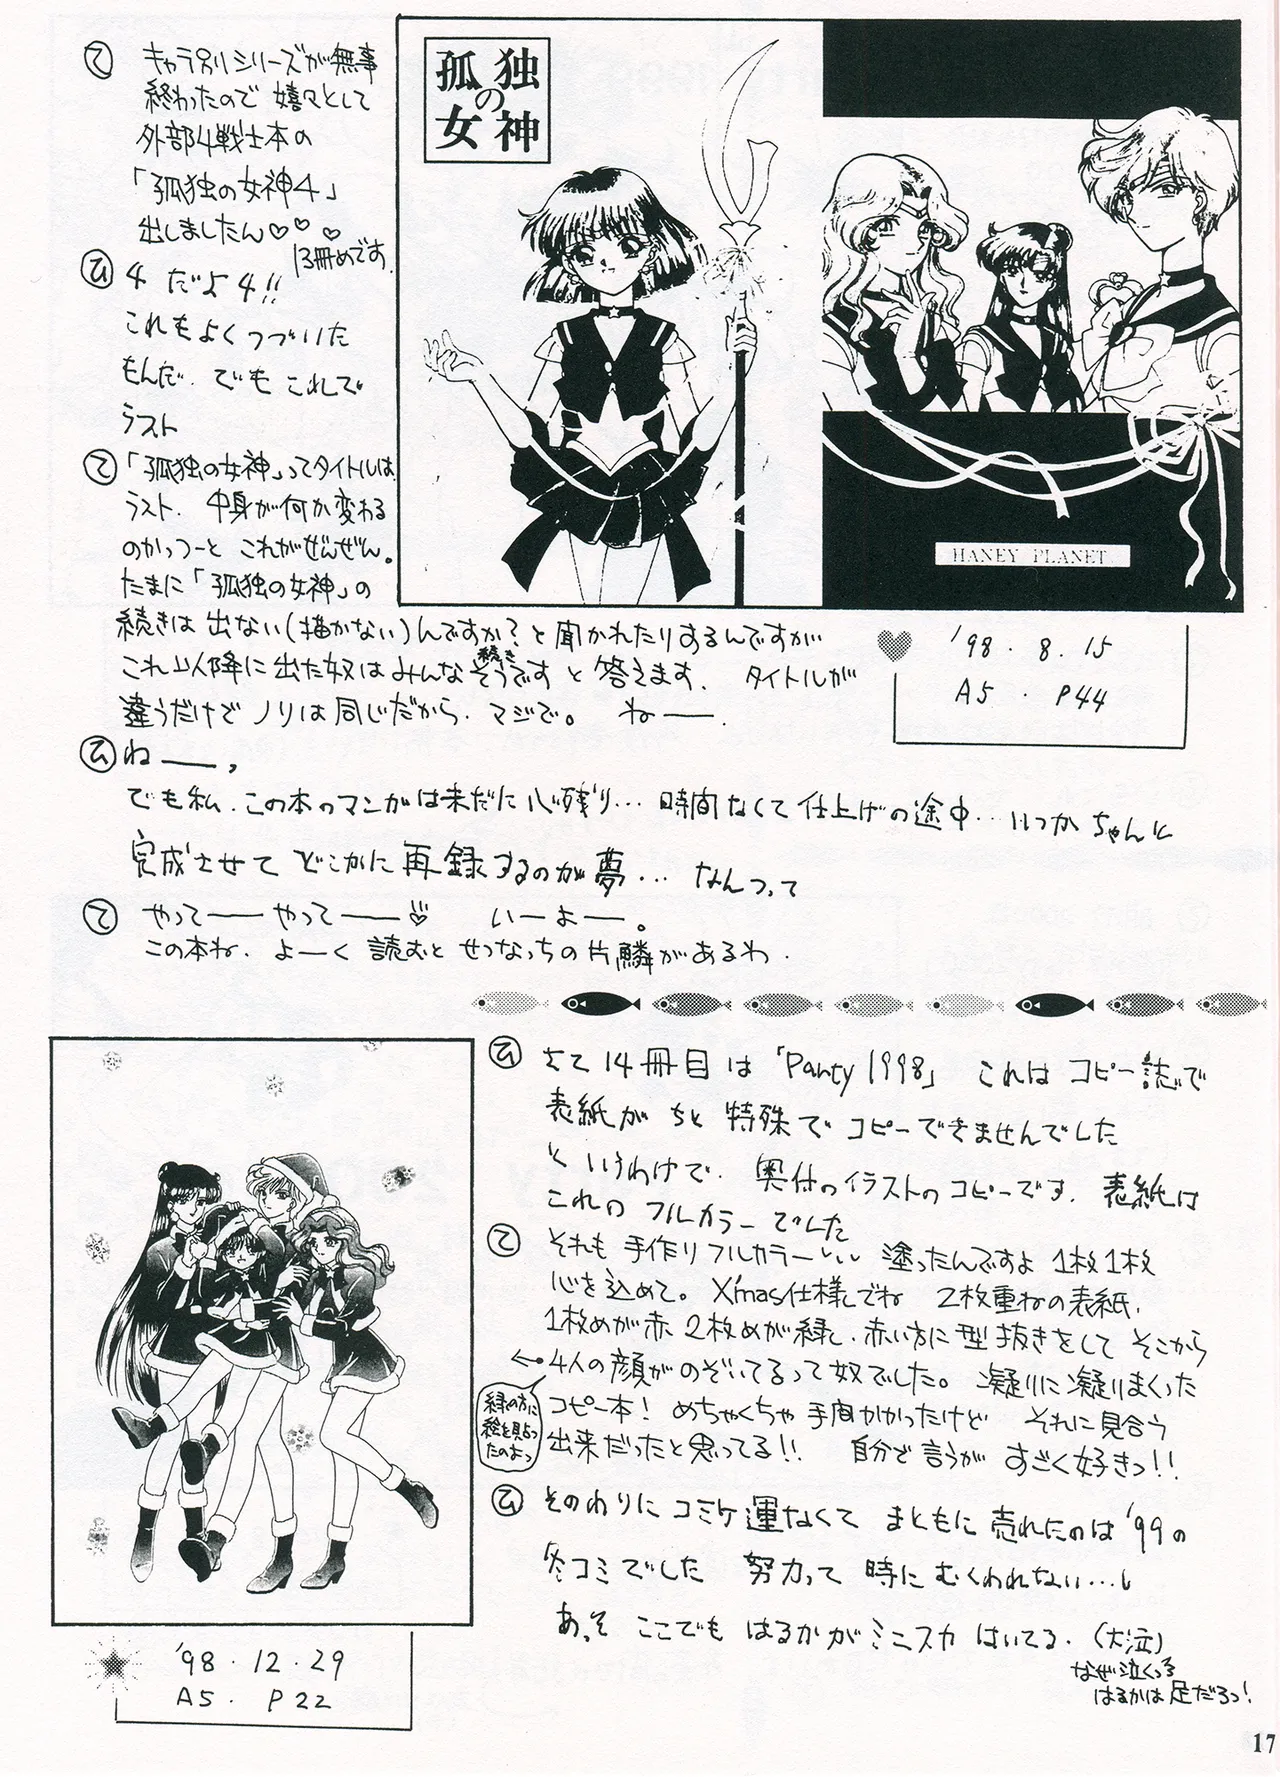 孤独
の
女神
HANEY PLANET
て キャラ別シリーズが無事
終わったので 嬉々として
外部4戦士本の
「孤独の女神4」
出しましたん♡♡♡
13冊めです.
ひ 4 だよ 4!!
これも よく つづいた
もんだ. でも これで
ラスト
て 「孤独の女神」ってタイトルは
ラスト. 中身が何か変わる
のかっつーと これがぜんぜん。
たまに「孤独の女神」の
続きは 出ない(描かない)んですか? と 聞かれたりするんですが
これ以降に出た奴は みんな そうです と 答えます. タイトルが
続き
違うだけで ノリは 同じだから. マジで。 ねー.
'98.8.15
A5. P44
ひ ねー,
でも 私. この本のマンガは未だに 心残り… 時間なくて 仕上げの途中… いつか ちゃんと
完成させて どこかに 再録するのが夢… なんつって
て やってー やってー♡ いーよー。
この本ね. よーく 読むと せつなっちの片鱗があるわ.
ひ さて 14冊目は「Party 1998」 これは コピー誌で
表紙が ちと 特殊で コピーできませんでした
と いうわけで. 奥付のイラストの コピーです. 表紙は
これの フルカラーでした
て それも 手作りフルカラー… 塗ったんですよ 1枚1枚
心を込めて。 X'mas仕様でね 2枚重ねの表紙.
1枚めが赤 2枚めが緑で. 赤い方に 型抜きをして そこから
←4人の顔がのぞいてるって奴でした。 凝りに凝りまくった
コピー本! めちゃくちゃ 手間かかったけど それに見合う
出来だったと思ってる!! 自分で言うが すごく好きっ!!
緑の方に
絵を貼っ
たのよっ
ひ そのわりに コミケ運なくて まともに 売れたのは '99の
冬コミでした 努力って 時に むくわれない…し
あっそ ここでも はるかが ミニスカ はいてる. (大泣)
なぜ泣くっ
はるかは 足だろっ!
'98.12.29
A5. P22
17